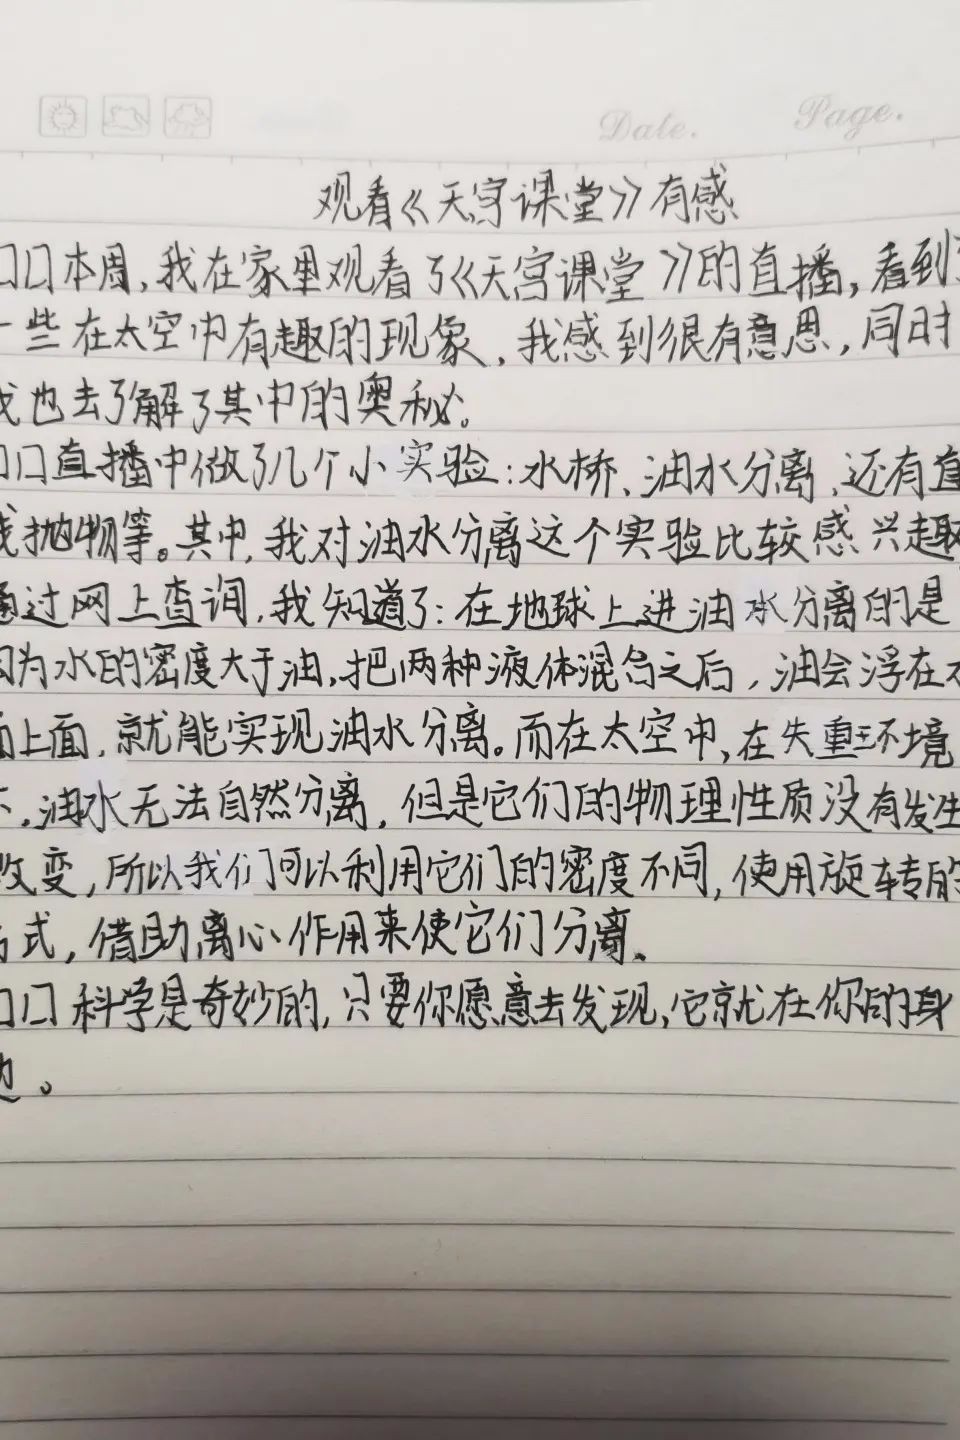 Date.
Page.
观看《天宫课堂》有感
口口本周,我在家里观看了《天宫课堂》的直播,看到了
一些在太空中有趣的现象,我感到很有意思,同时
我也去了解了其中的奥秘。
口口直播中做了几个小实验:水桥、油水分离、还有直
线抛物等。其中,我对油水分离这个实验比较感兴趣
通过网上查询,我知道了:在地球上进油水分离的是
因为水的密度大于油,把两种液体混合之后,油会浮在水
面上面,就能实现油水分离。而在太空中,在失重环境
下,油水无法自然分离,但是它们的物理性质没有发生
改变,所以我们可以利用它们的密度不同,使用旋转的
方式,借助离心作用来使它们分离。
口口科学是奇妙的,只要你愿意去发现,它就在你的身
边。